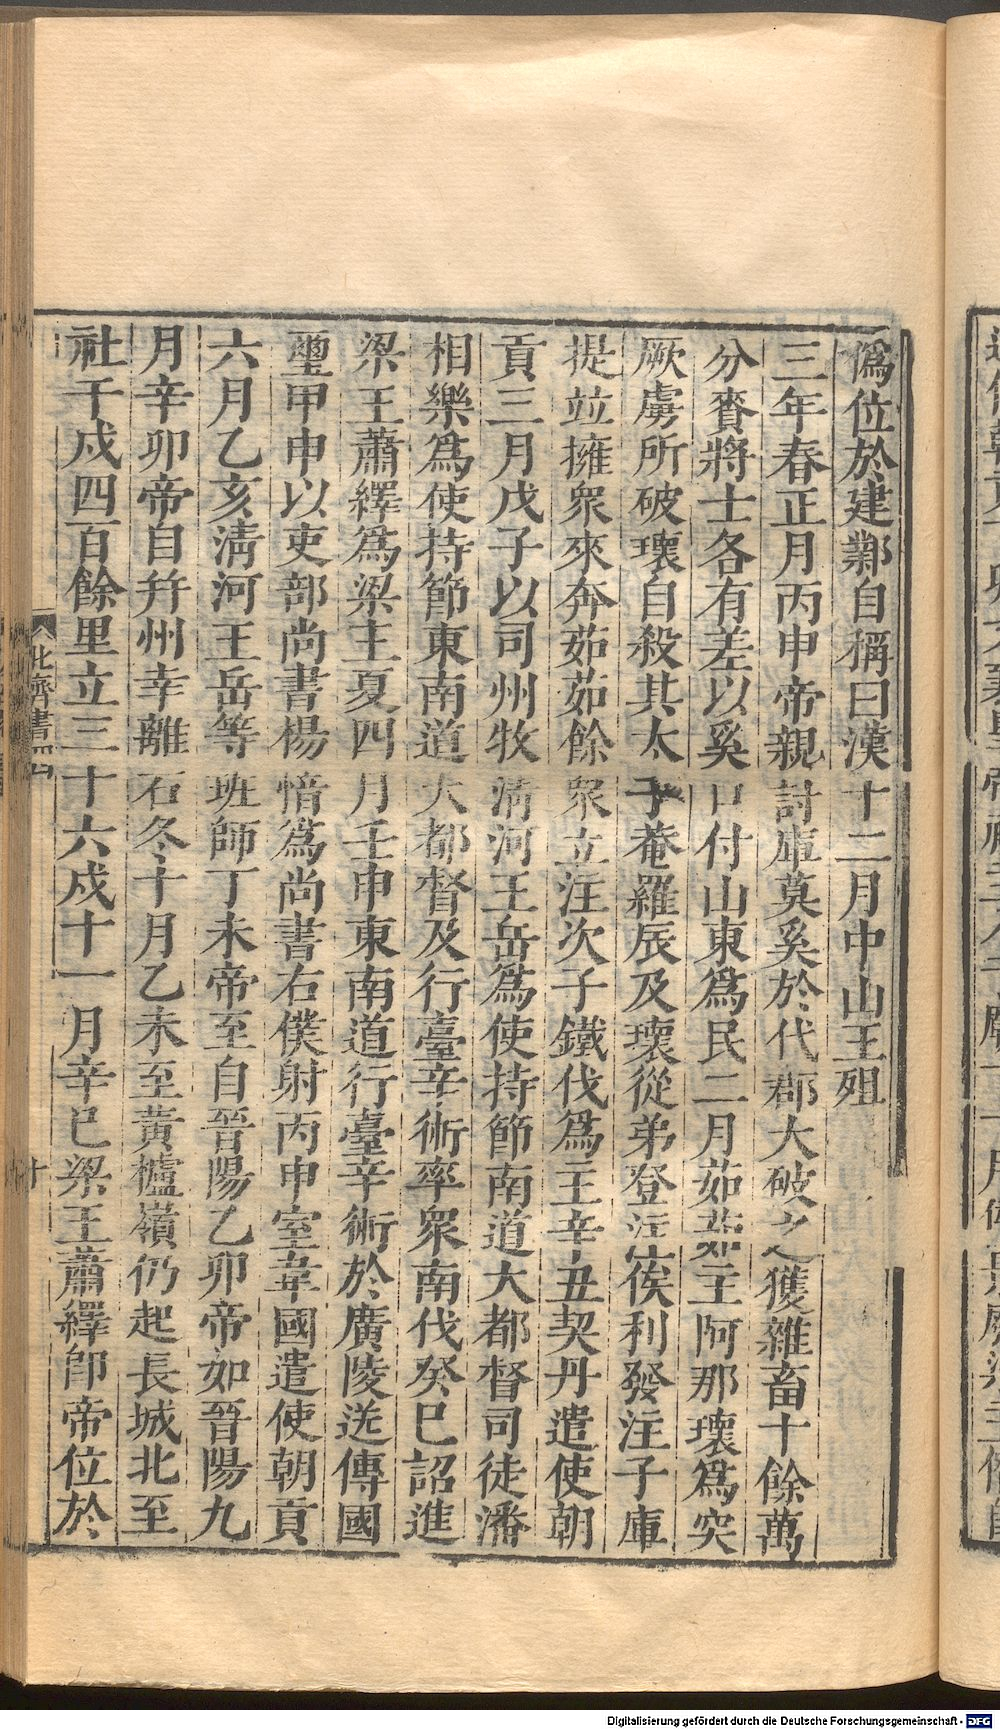 僞位於建鄴自稱曰漢十二月中山王殂
三年春正月丙申帝親討庫莫奚於代郡大破之獲雜畜十餘萬
分賚將士各有差以奚口付山東爲民二月茹茹主阿那瓌爲突
厥虜所破瓌自殺其太子菴羅辰及瓌從弟登注俟利發注子庫
提竝擁衆來奔茹茹餘衆立注次子鐵伐爲主辛丑契丹遣使朝
貢三月戊子以司州牧清河王岳爲使持節南道大都督司徒潘
相樂爲使持節東南道大都督及行臺辛術率衆南伐癸巳詔進
梁王蕭繹爲梁主夏四月壬申東南道行臺辛術於廣陵送傳國
璽甲申以吏部尚書楊愔爲尚書右僕射丙申室韋國遣使朝貢
六月乙亥清河王岳等班師丁未帝至自晉陽乙卯帝如晉陽九
月辛卯帝自幷州幸離石冬十月乙未至黃櫨嶺仍起長城北至
社干戍四百餘里立三十六戍十一月辛巳梁王蕭繹卽帝位於
北齊書四
十
Digitalisierung gefördert durch die Deutsche Forschungsgemeinschaft - DFG